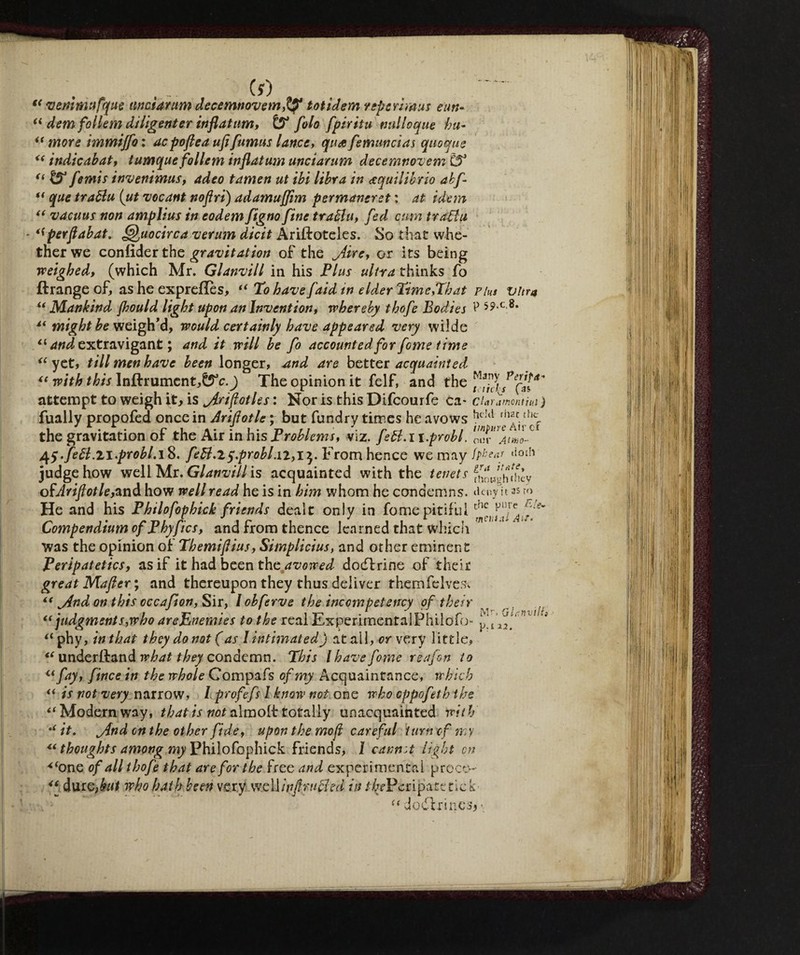 (5)
“ venimusque unciarum decemnovem,& totidem reperimus eun-
“ dem follem diligenter inflatum, & solo spiritu nulloque hu-
“ more immisso: ac postea usi sumus lance, quæ semuncias quoque
“ indicabat, tumque follem inflatum unciarum decemnovem &
“ & semis invenimus, adeo tamen ut ibi libra in æquilibrio abs-
“ que tractu (ut vocant nostri) adamussim permaneret: at idem
“ vacuus non amplius in eodem signo sine tractu, sed cum tractu
“ perstabat. Quocirca verum dicit Aristoteles. So that whe-
ther we consider the gravitation of the Aire, or its being
weighed, (which Mr. Glanvill in his Plus ultra thinks so
strange of, as he expresses, “ To have said in elder Time,That
“ Mankind should light upon an Invention, whereby those Bodies
“ might be weigh'd, would certainly have appeared very wilde
“ and extravigant; and it will be so accounted for some time
“ yet, till men have been longer, and are better acquainted
“ with this Instrument,&c.) The opinion it self, and the
attempt to weigh it, is Aristotles: Nor is this Discourse ca-
sually proposed once in Aristotle; but sundry times he avows
the gravitation of the Air in his Problems, viz. sect.11.probl.
45.sect.21.probl.18. sect.25.probl.12,13. From hence we may
judge how well Mr. Glanvill is acquainted with the tenets
of Aristotle,and how well read he is in him whom he condemns.
He and his Philosophick friends dealt only in some pitiful
Compendium of Physics, and from thence learned that which
was the opinion of Themistius, Simplicius, and other eminent
Peripatetics, as if it had been the avowed doctrine of their
great Master; and thereupon they thus deliver themselves.
“ And on this occasion, Sir, I observe the incompetency of their
“ judgments,who are Enemies to the real Experimental Philoso-
“ phy, in that they do not (as I intimated) at all, or very little,
“ understand what they condemn. This I have some reason to
“ say, since in the whole Compass of my Acquaintance, which
“ is not very narrow, I profess I know not one who opposeth the
“ Modern way, that is not almost totally unacquainted with
“ it. And on the other side, upon the most careful turn of my
“ thoughts among my Philosophick friends, I cannot light on
“ one of all those that are for the free and experimental proce-
“ dure,but who hath been very well instructed in the Peripatetick
“ doctrines,
Plus Ultra
p 59.c.8.
Many Peripa-
teticks (as
Claramontius)
held that the
impure Air of
our Atmo-
sphear doth
gravitate,
though they
deny it as to
the pure Ele-
mental Air.
Mr. Glanvill,
p.122.